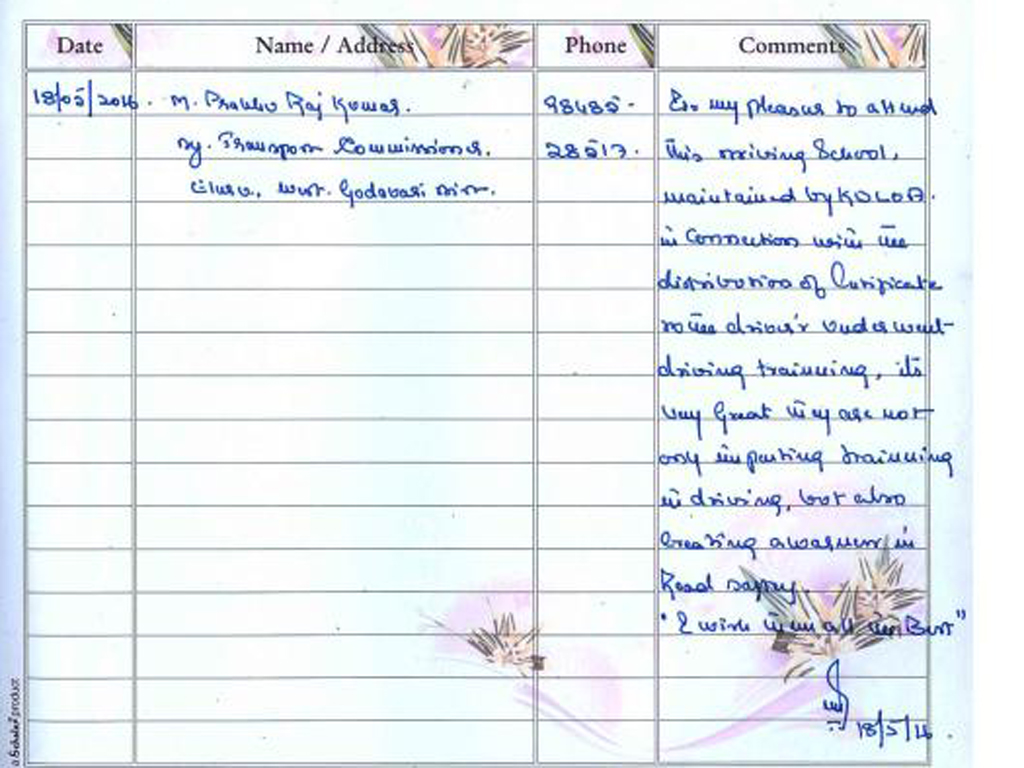 Date Name / Address Phone Comments
18/05/2016. M. Prabhu Raj Kumar. 98485- Its my pleasure to attend
Dy. Transport Commissioner. 28517. this driving School,
Eluru, West. Godavari Dist. maintained by
in Connection with the
distribution of Certificate
to the driver's underwent
driving trainning, its
very Great they are not
only imparting trainning
in driving, but also
Creating awarness in
Road safety.
"I wish them all the Best"
18/5/16.
a Scholar product